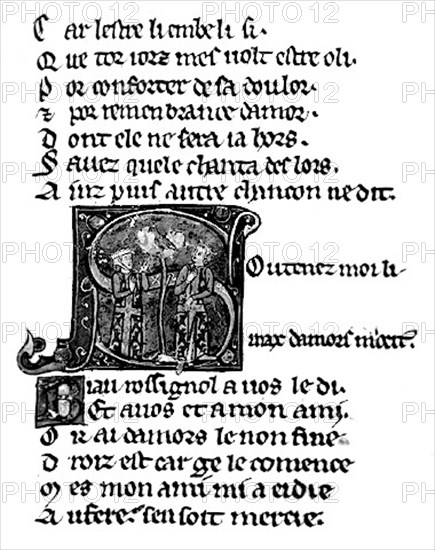 Car lestre li embeli si.
Que toz iorz mes uolt estre oli.
Por conforter de sa doulor.
⁊ por remembrance damor.
Dont ele ne sera ia hors.
Sauez quele chanta des lors.
Ainz puis autre chancon ne dit.
Soutenez moi li
max damors mocit.
Biau rossignol a uos le di.
Et a uos et a mon ami.
Or ai damors le non fine
Droiz est car ge le comence
Mes mon ami mi a eidie
A ufere. sen soit mercie.
PHOTO 12